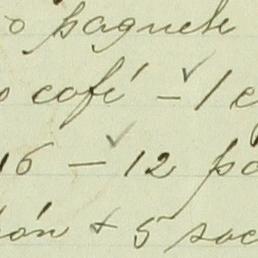 o paquete
o café - 1 c
16 - 12 pa
ión + 5 sac